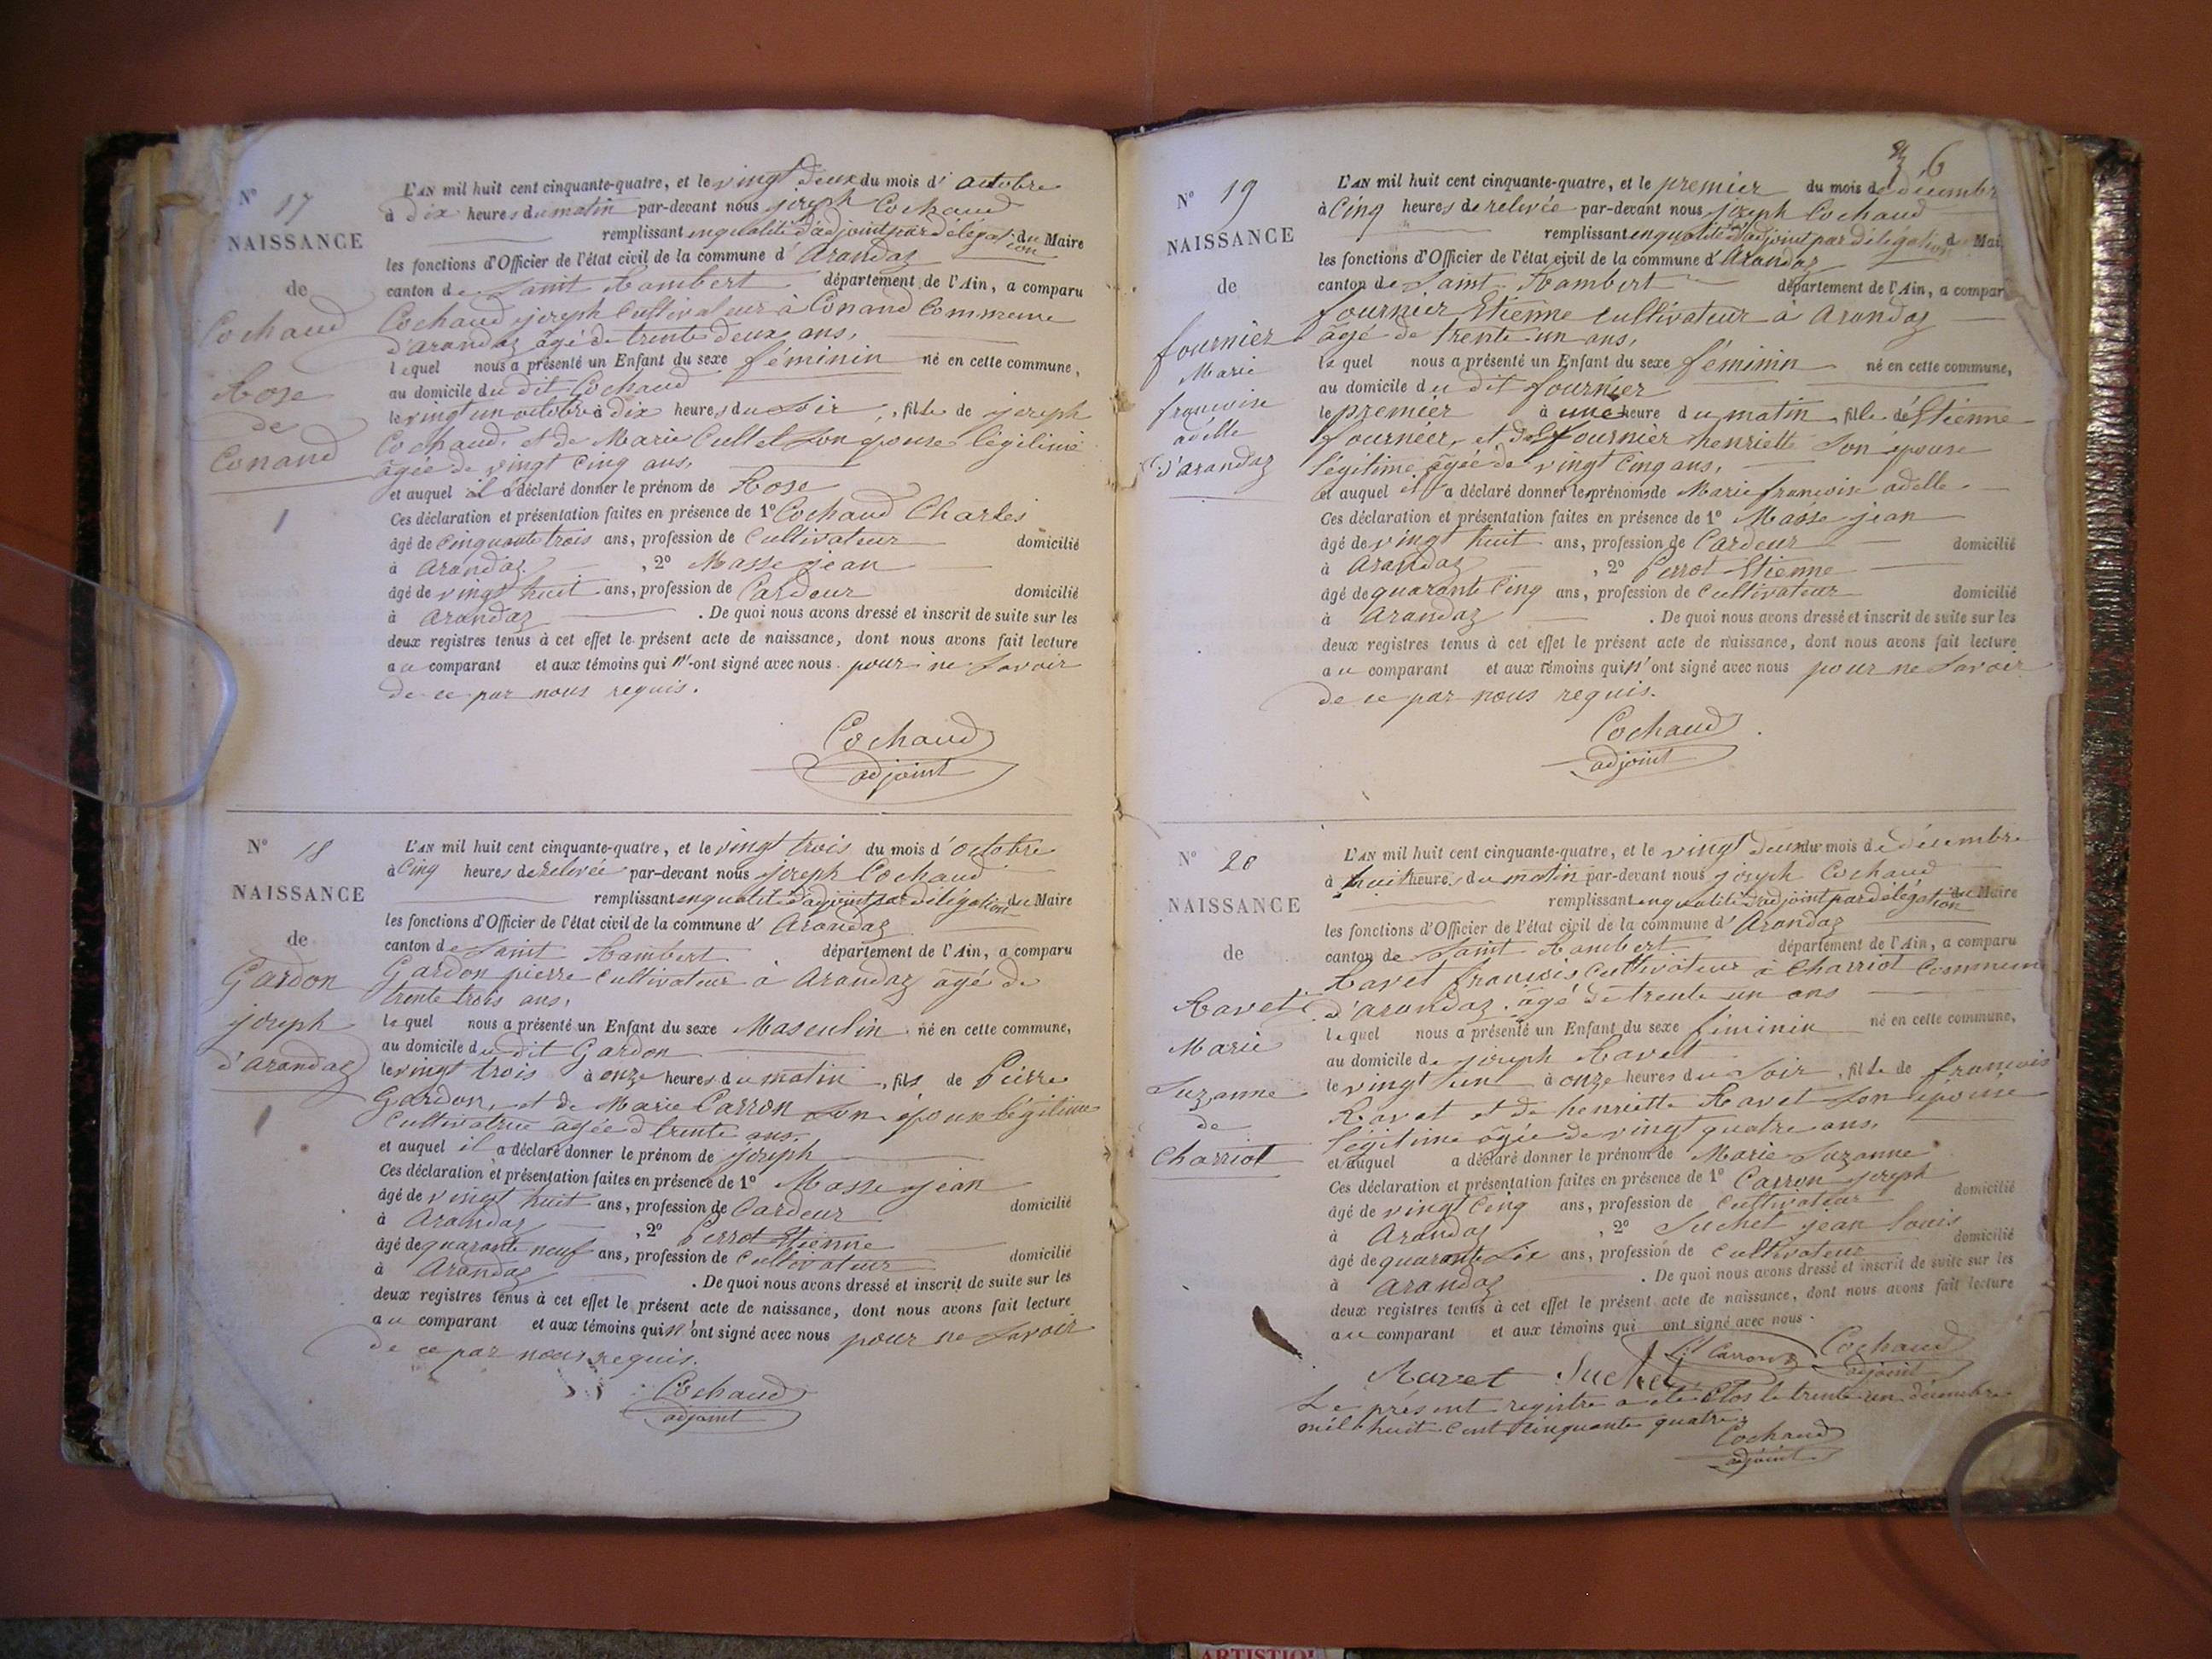 N° 17
NAISSANCE
de
Cochaud
Rose
de
Conand
1
L'AN mil huit cent cinquante-quatre, et le vingt deux du mois d' octobre
à dix heures du matin par-devant nous joseph Cochaud
remplissant en qualité d'adjoint par délégation du Maire
les fonctions d'Officier de l'état civil de la commune d' Arandaz
canton de Saint Rambert département de l'Ain, a comparu
Cochaud joseph Cultivateur à Conand Commune
d'arandaz âgé de trente deux ans,
lequel nous a présenté un Enfant du sexe féminin né en cette commune,
au domicile du dit Cochaud
le vingt un octobre à dix heures du Soir, fille de joseph
Cochaud, et de Marie Cullet Son épouse légitime
âgée de vingt cinq ans,
et auquel il a déclaré donner le prénom de Rose
Ces déclaration et présentation faites en présence de 1° Cochaud Charles
âgé de cinquante trois ans, profession de Cultivateur domicilié
à Arandaz, 2° Masse jean
âgé de vingt huit ans, profession de Cardeur domicilié
à Arandaz. De quoi nous avons dressé et inscrit de suite sur les
deux registres tenus à cet effet le présent acte de naissance, dont nous avons fait lecture
au comparant et aux témoins qui n'ont signé avec nous pour ne Savoir
de ce par nous requis.
Cochaud
adjoint
N° 18
NAISSANCE
de
Gardon
joseph
d'arandaz
1
L'AN mil huit cent cinquante-quatre, et le vingt trois du mois d'octobre
à Cinq heures de relevée par-devant nous joseph Cochaud
remplissant en qualité d'adjoint par délégation du Maire
les fonctions d'Officier de l'état civil de la commune d' Arandaz
canton de Saint Rambert département de l'Ain, a comparu
Gardon pierre Cultivateur à Arandaz âgé de
trente trois ans,
lequel nous a présenté un Enfant du sexe Masculin né en cette commune,
au domicile du dit Gardon
le vingt trois à onze heures du matin, fils de Pierre
Gardon, et de Marie Carron Son épouse légitime
Cultivatrice agée d trente ans.
et auquel il a déclaré donner le prénom de joseph
Ces déclaration et présentation faites en présence de 1° Masse jean
âgé de vingt huit ans, profession de Cardeur domicilié
à Arandaz, 2° Perrot Etienne
âgé de quarante neuf ans, profession de Cultivateur domicilié
à Arandaz. De quoi nous avons dressé et inscrit de suite sur les
deux registres tenus à cet effet le présent acte de naissance, dont nous avons fait lecture
au comparant et aux témoins qui n'ont signé avec nous pour ne Savoir
de ce par nous requis.
Cochaud
adjoint
6
N° 19
NAISSANCE
de
fournier
Marie
francoise
adelle
d'arandaz
L'AN mil huit cent cinquante-quatre, et le premier du mois de décembr
à Cinq heures de relevée par-devant nous joseph Cochaud
remplissant en qualité d'adjoint par délégation d Mai
les fonctions d'Officier de l'état civil de la commune d'Arandaz
canton de Saint Rambert département de l'Ain, a compar
fournier Etienne cultivateur à Arandaz
âgé de trente un ans,
lequel nous a présenté un Enfant du sexe féminin né en cette commune,
au domicile du dit fournier
le premier à une heure du matin, fille d'Etienne
fournier, et de fournier henriette Son épouse
légitime âgée de vingt Cinq ans,
et auquel il a déclaré donner les prénoms de Marie francoise adelle
Ces déclaration et présentation faites en présence de 1° Masse jean
âgé de vingt huit ans, profession de Cardeur domicilié
à Arandaz, 2° Perrot Etienne
âgé de quarante Cinq ans, profession de Cultivateur domicilié
à Arandaz. De quoi nous avons dressé et inscrit de suite sur les
deux registres tenus à cet effet le présent acte de naissance, dont nous avons fait lecture
au comparant et aux témoins qui n'ont signé avec nous pour ne Savoir
de ce par nous requis.
Cochaud
adjoint
N° 20
NAISSANCE
de
Ravet
Marie
Suzanne
de
Charriot
L'AN mil huit cent cinquante-quatre, et le vingt deux du mois de décembre
à huit heures du matin par-devant nous joseph Cochaud
remplissant en qualité d'adjoint par délégation du Maire
les fonctions d'Officier de l'état civil de la commune d' Arandaz
canton de Saint Rambert département de l'Ain, a comparu
Ravet francois Cultivateur à Charriot Commune
d'arandaz, âgé de trente un ans
lequel nous a présenté un Enfant du sexe féminin né en cette commune,
au domicile de joseph Ravet
le vingt un à onze heures du Soir, fille de francois
Ravet et de henriette Ravet Son épouse
légitime âgée de vingt quatre ans,
et auquel a déclaré donner le prénom de Marie Suzanne
Ces déclaration et présentation faites en présence de 1° Carron joseph
âgé de vingt Cinq ans, profession de Cultivateur domicilié
à Arandaz, 2° Suchet jean louis
âgé de quarante Six ans, profession de Cultivateur domicilié
à Arandaz. De quoi nous avons dressé et inscrit de suite sur les
deux registres tenus à cet effet le présent acte de naissance, dont nous avons fait lecture
au comparant et aux témoins qui ont signé avec nous.
Ravet Suchet Carron Cochaud
adjoint
Le présent registre a été Clos le trente un décembre
mil huit Cent Cinquante quatre.
Cochaud
adjoint